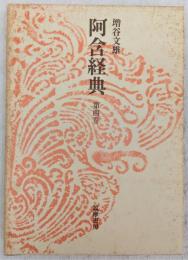 増谷文雄
阿含経典
第四巻
筑摩書房